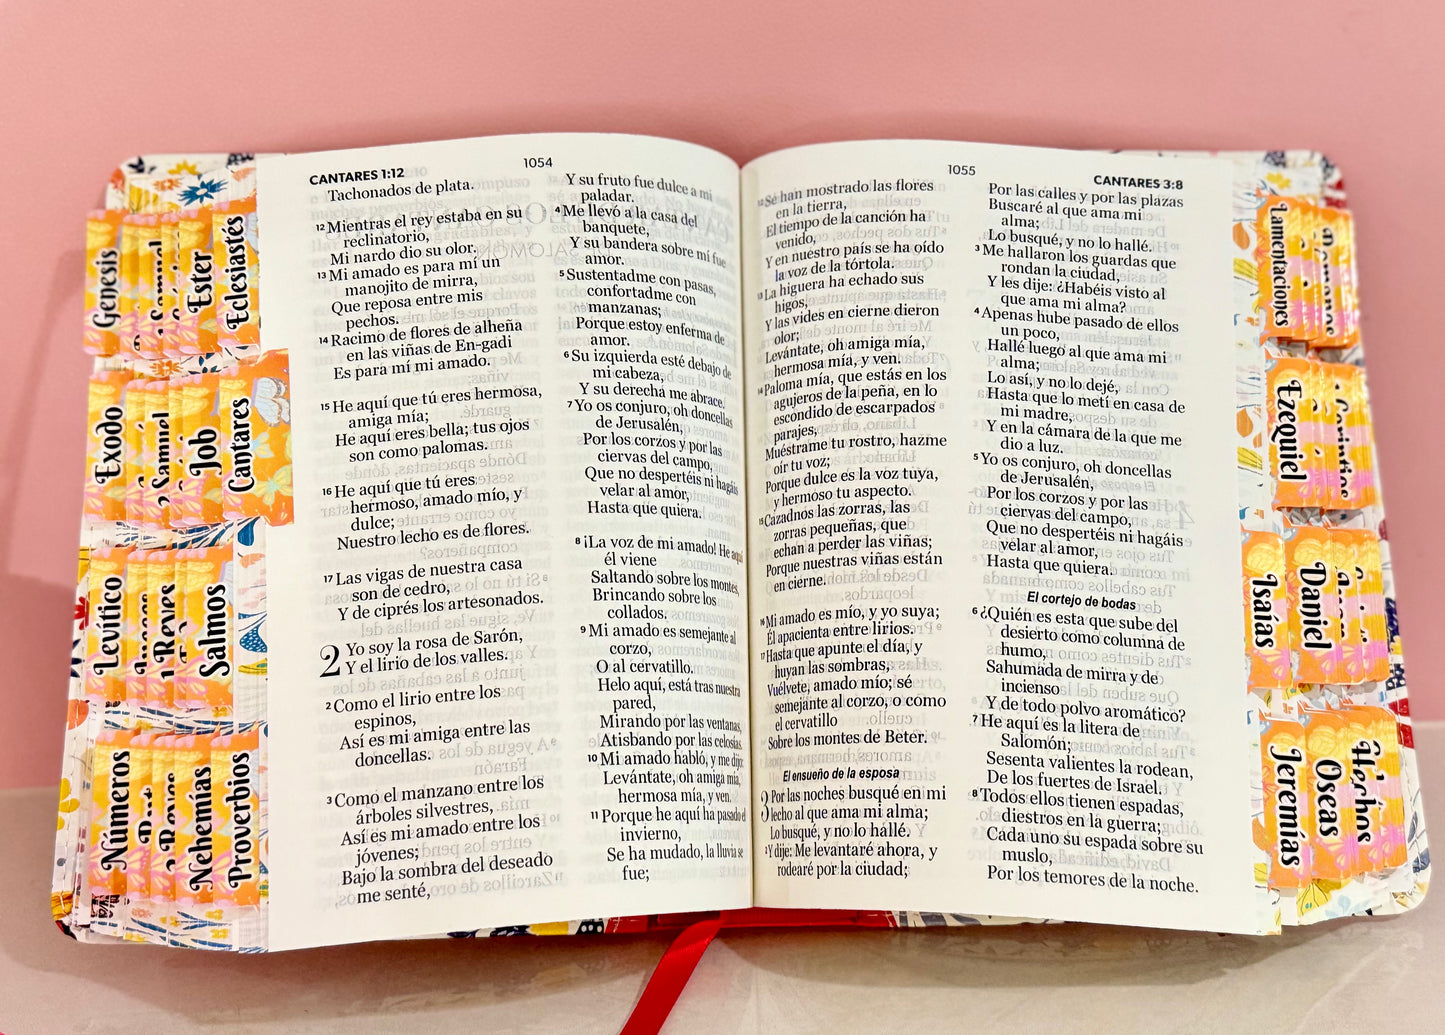 CANTARES 1:12
1054
Tachonados de plata.
12 Mientras el rey estaba en su
reclinatorio,
Mi nardo dio su olor.
13 Mi amado es para mí un
manojito de mirra,
Que reposa entre mis
pechos.
14 Racimo de flores de alheña
en las viñas de En-gadi
Es para mí mi amado.
15 He aquí que tú eres hermosa,
amiga mía;
He aquí eres bella; tus ojos
son como palomas.
16 He aquí que tú eres
hermoso, amado mío, y
dulce;
Nuestro lecho es de flores.
17 Las vigas de nuestra casa
son de cedro,
Y de ciprés los artesonados.
2 Yo soy la rosa de Sarón,
Y el lirio de los valles.
2 Como el lirio entre los
espinos,
Así es mi amiga entre las
doncellas.
3 Como el manzano entre los
árboles silvestres,
Así es mi amado entre los
jóvenes;
Bajo la sombra del deseado
me senté,
Y su fruto fue dulce a mi
paladar.
4 Me llevó a la casa del
banquete,
Y su bandera sobre mí fue
amor.
5 Sustentadme con pasas,
confortadme con
manzanas;
Porque estoy enferma de
amor.
6 Su izquierda esté debajo de
mi cabeza,
Y su derecha me abrace.
7 Yo os conjuro, oh doncellas
de Jerusalén,
Por los corzos y por las
ciervas del campo,
Que no despertéis ni hagáis
velar al amor,
Hasta que quiera.
8 ¡La voz de mi amado! He aquí
él viene
Saltando sobre los montes,
Brincando sobre los
collados.
9 Mi amado es semejante al
corzo,
O al cervatillo.
Helo aquí, está tras nuestra
pared,
Mirando por las ventanas,
Atisbando por las celosías.
10 Mi amado habló, y me dijo:
Levántate, oh amiga mía,
hermosa mía, y ven.
11 Porque he aquí ha pasado el
invierno,
Se ha mudado, la lluvia se
fue;
1055
CANTARES 3:8
12 Se han mostrado las flores
en la tierra,
El tiempo de la canción ha
venido,
Y en nuestro país se ha oído
la voz de la tórtola.
13 La higuera ha echado sus
higos,
Y las vides en cierne dieron
olor;
Levántate, oh amiga mía,
hermosa mía, y ven.
14 Paloma mía, que estás en los
agujeros de la peña, en lo
escondido de escarpados
parajes,
Muéstrame tu rostro, hazme
oír tu voz;
Porque dulce es la voz tuya,
y hermoso tu aspecto.
15 Cazadnos las zorras, las
zorras pequeñas, que
echan a perder las viñas;
Porque nuestras viñas están
en cierne.
16 Mi amado es mío, y yo suya;
Él apacienta entre lirios.
17 Hasta que apunte el día, y
huyan las sombras,
Vuélvete, amado mío; sé
semejante al corzo, o como
el cervatillo
Sobre los montes de Beter.
El ensueño de la esposa
3 Por las noches busqué en mi
lecho al que ama mi alma;
Lo busqué, y no lo hallé.
2 Y dije: Me levantaré ahora, y
rodearé por la ciudad;
Por las calles y por las plazas
Buscaré al que ama mi
alma;
Lo busqué, y no lo hallé.
3 Me hallaron los guardas que
rondan la ciudad,
Y les dije: ¿Habéis visto al
que ama mi alma?
4 Apenas hube pasado de ellos
un poco,
Hallé luego al que ama mi
alma;
Lo así, y no lo dejé,
Hasta que lo metí en casa de
mi madre,
Y en la cámara de la que me
dio a luz.
5 Yo os conjuro, oh doncellas
de Jerusalén,
Por los corzos y por las
ciervas del campo,
Que no despertéis ni hagáis
velar al amor,
Hasta que quiera.
El cortejo de bodas
6 ¿Quién es esta que sube del
desierto como columna de
humo,
Sahumada de mirra y de
incienso
Y de todo polvo aromático?
7 He aquí es la litera de
Salomón;
Sesenta valientes la rodean,
De los fuertes de Israel.
8 Todos ellos tienen espadas,
diestros en la guerra;
Cada uno su espada sobre su
muslo,
Por los temores de la noche.
Genesis
Ester
Eclesiastés
Exodo
Job
Cantares
Levitico
1 Reyes
Salmos
Números
Nehemías
Proverbios
Lamentaciones
Ezequiel
Isaías
Daniel
Jeremías
Oseas
Hechos